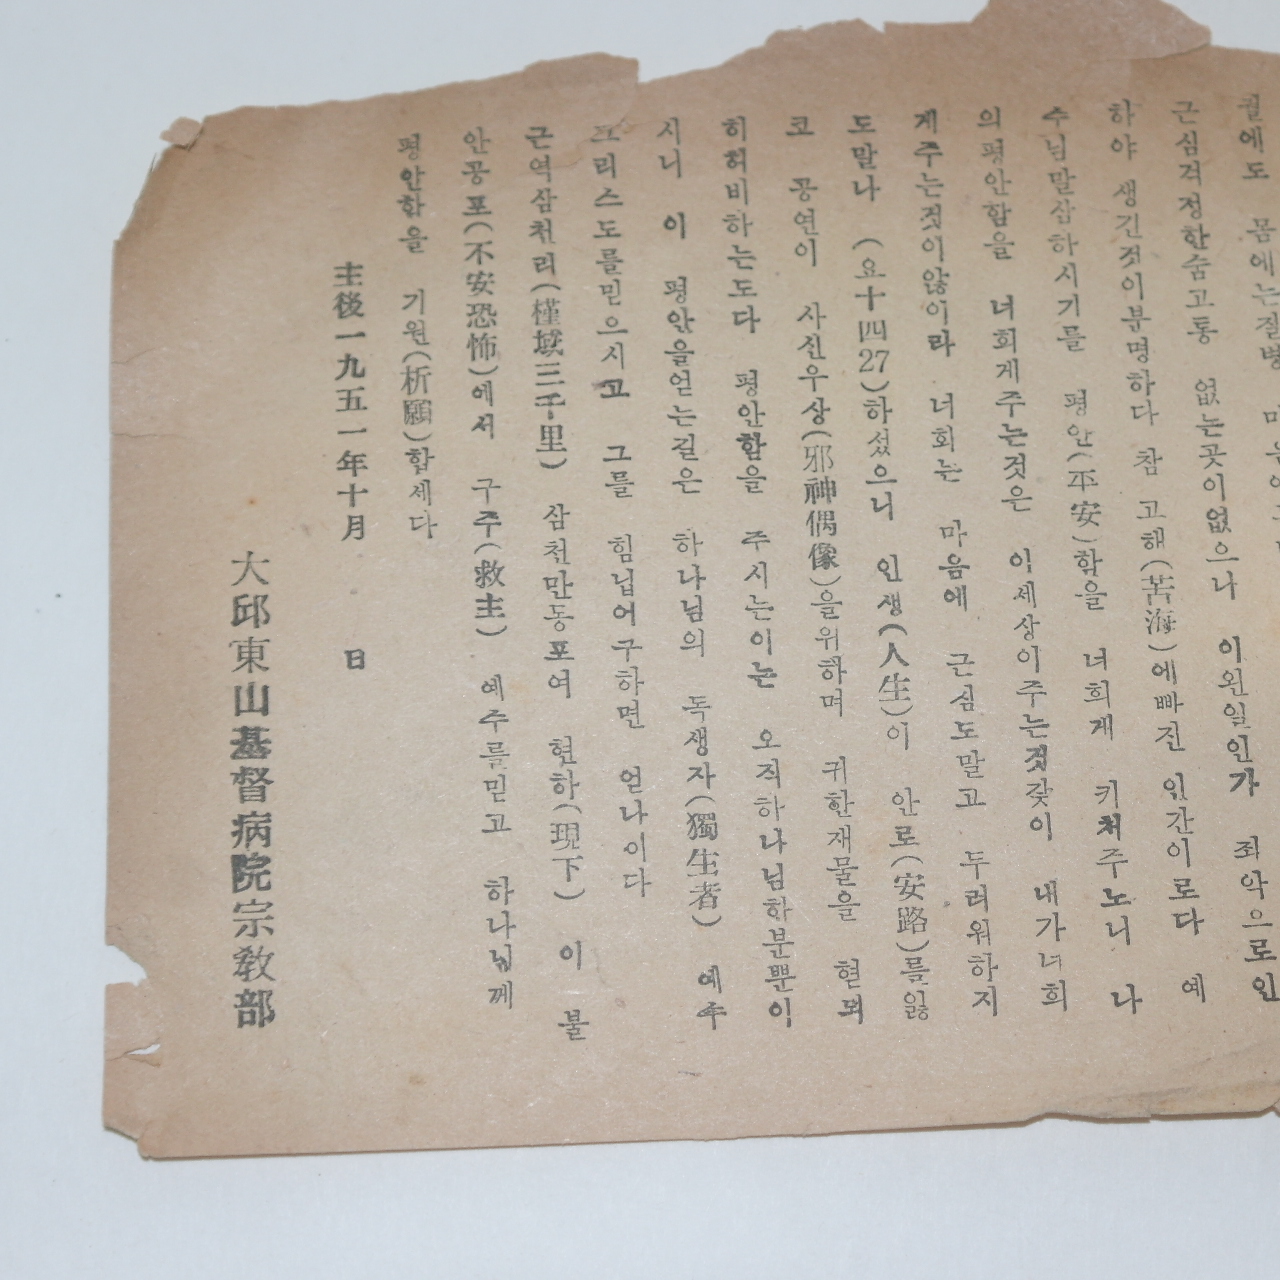 궐에도 몸에는질병 마음에는
근심걱정한숨고통 없는곳이없으나 이왼일인가 죄악으로인
하야 생긴것이분명하다 참 고해(苦海)에빠진 인간이로다 예
수님말삼하시기를 평안(平安)함을 너희게 키처주노니 나
의평안함을 너희게주는것은 이세상이주는것갖이 내가너희
게주는것이않이라 너회는 마음에 근심도말고 두려워하지
도말나 (요十四27)하섰으니 인생(人生)이 안로(安路)를잃
코 공연이 사신우상(邪神偶像)을위하며 귀한재물을 헌되
히허비하는도다 평안함을 주시는이는 오직하나님한분뿐이
시니 이 평안을얻는길은 하나님의 독생자(獨生者) 예수
그리스도를믿으시고 그를 힘닙어구하면 얻나이다
근역삼천리(槿域三千里) 삼천만동포여 현하(現下) 이 불
안공포(不安恐怖)에서 구주(救主) 예수를믿고 하나님께
평안함을 기원(祈願)합세다
主後一九五一年十月 日
大邱東山基督病院宗敎部